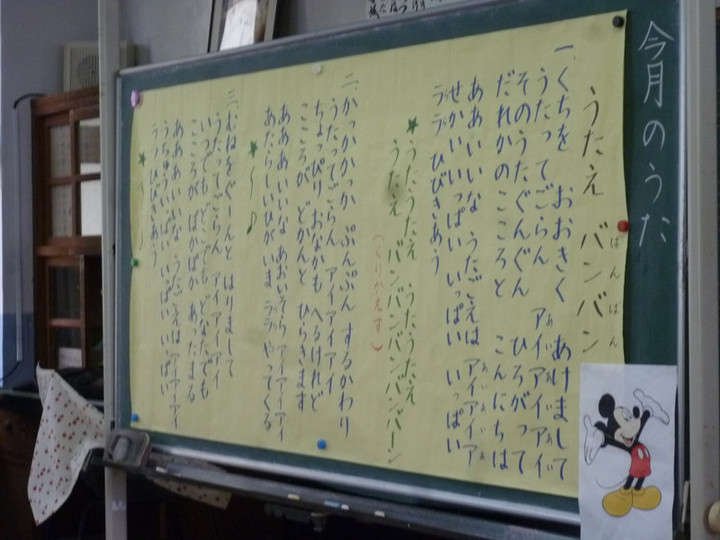 今月のうた
うたえ バンバン
ばん ばん
一、くちを おおきく あけまして
うたって ごらん アイアイアイ
そのうた ぐんぐん ひろがって
だれかのこころと こんにちは
ああいいな うたごえは アイアイア
せかいいっぱい いっぱい いっぱい
ララ ひびきあう
★うたうたうたえ うたうたうたえ
うたえ バンバンバンバンバーン
(くりかえす)
二、かっかかっか ぷんぷん するかわり
うたって ごらん アイアイアイ
ちょっぴり おなかも へるけれど
こころが どかんと ひらきます
ああ いいな あおいそら アイアーアイ
あたらしいひがいま ララ やってくる
★〜♪
三、むねをぐーんと はりまして
うたって ごらん アイアイアイ
いつでも どこでも どなたでも
こころが ぽかぽか あったまる
ああ いいな うたごえは アイアーアイ
うちゅういっぱい いっぱい いっぱい
ララ ひびきあう
★〜♪